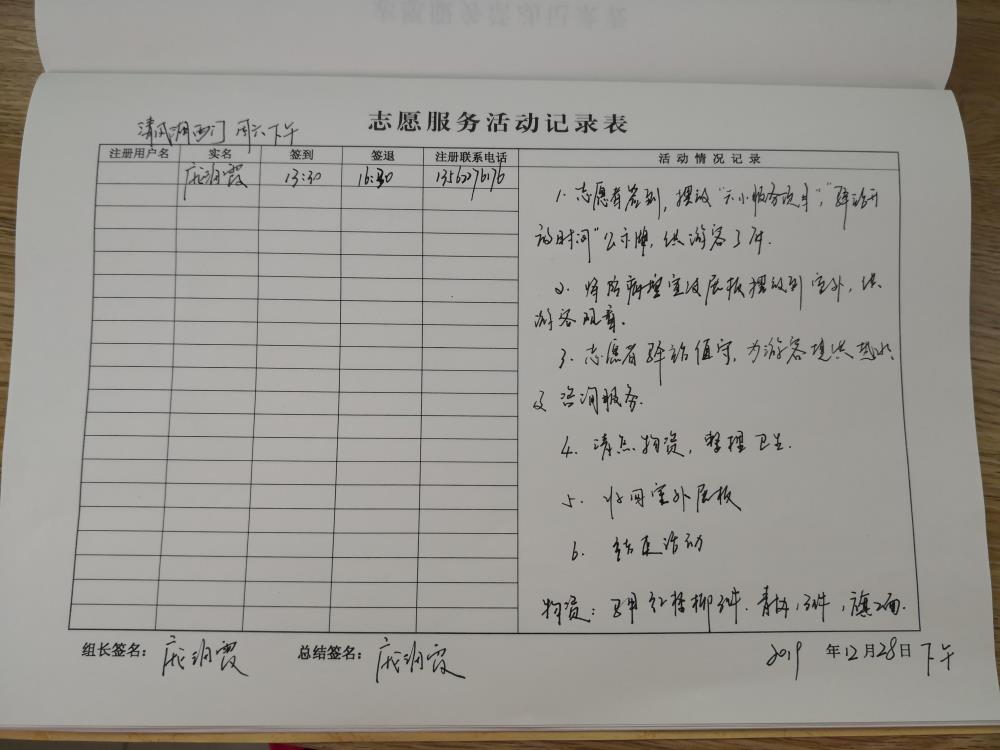 志愿服务活动记录表
清风湖西门 周六下午
注册用户名 实名 签到 签退 注册联系电话 活动情况记录
庞润霞 13:30 16:30
1. 志愿者签到，摆放“六小服务 ”，“驿站开
放时间”公示牌，供游客了解.
2. 将 室内展板摆放到室外，供
游客观看.
3. 志愿者驿站值守，为游客提供热水
及咨询服务.
4. 清点物资，整理卫生.
5. 收回室外展板
6. 结束活动
物资：马甲红 柳 件. 青 13件，旗2面.
组长签名： 庞润霞 总结签名： 庞润霞 2019 年12月28日 下午